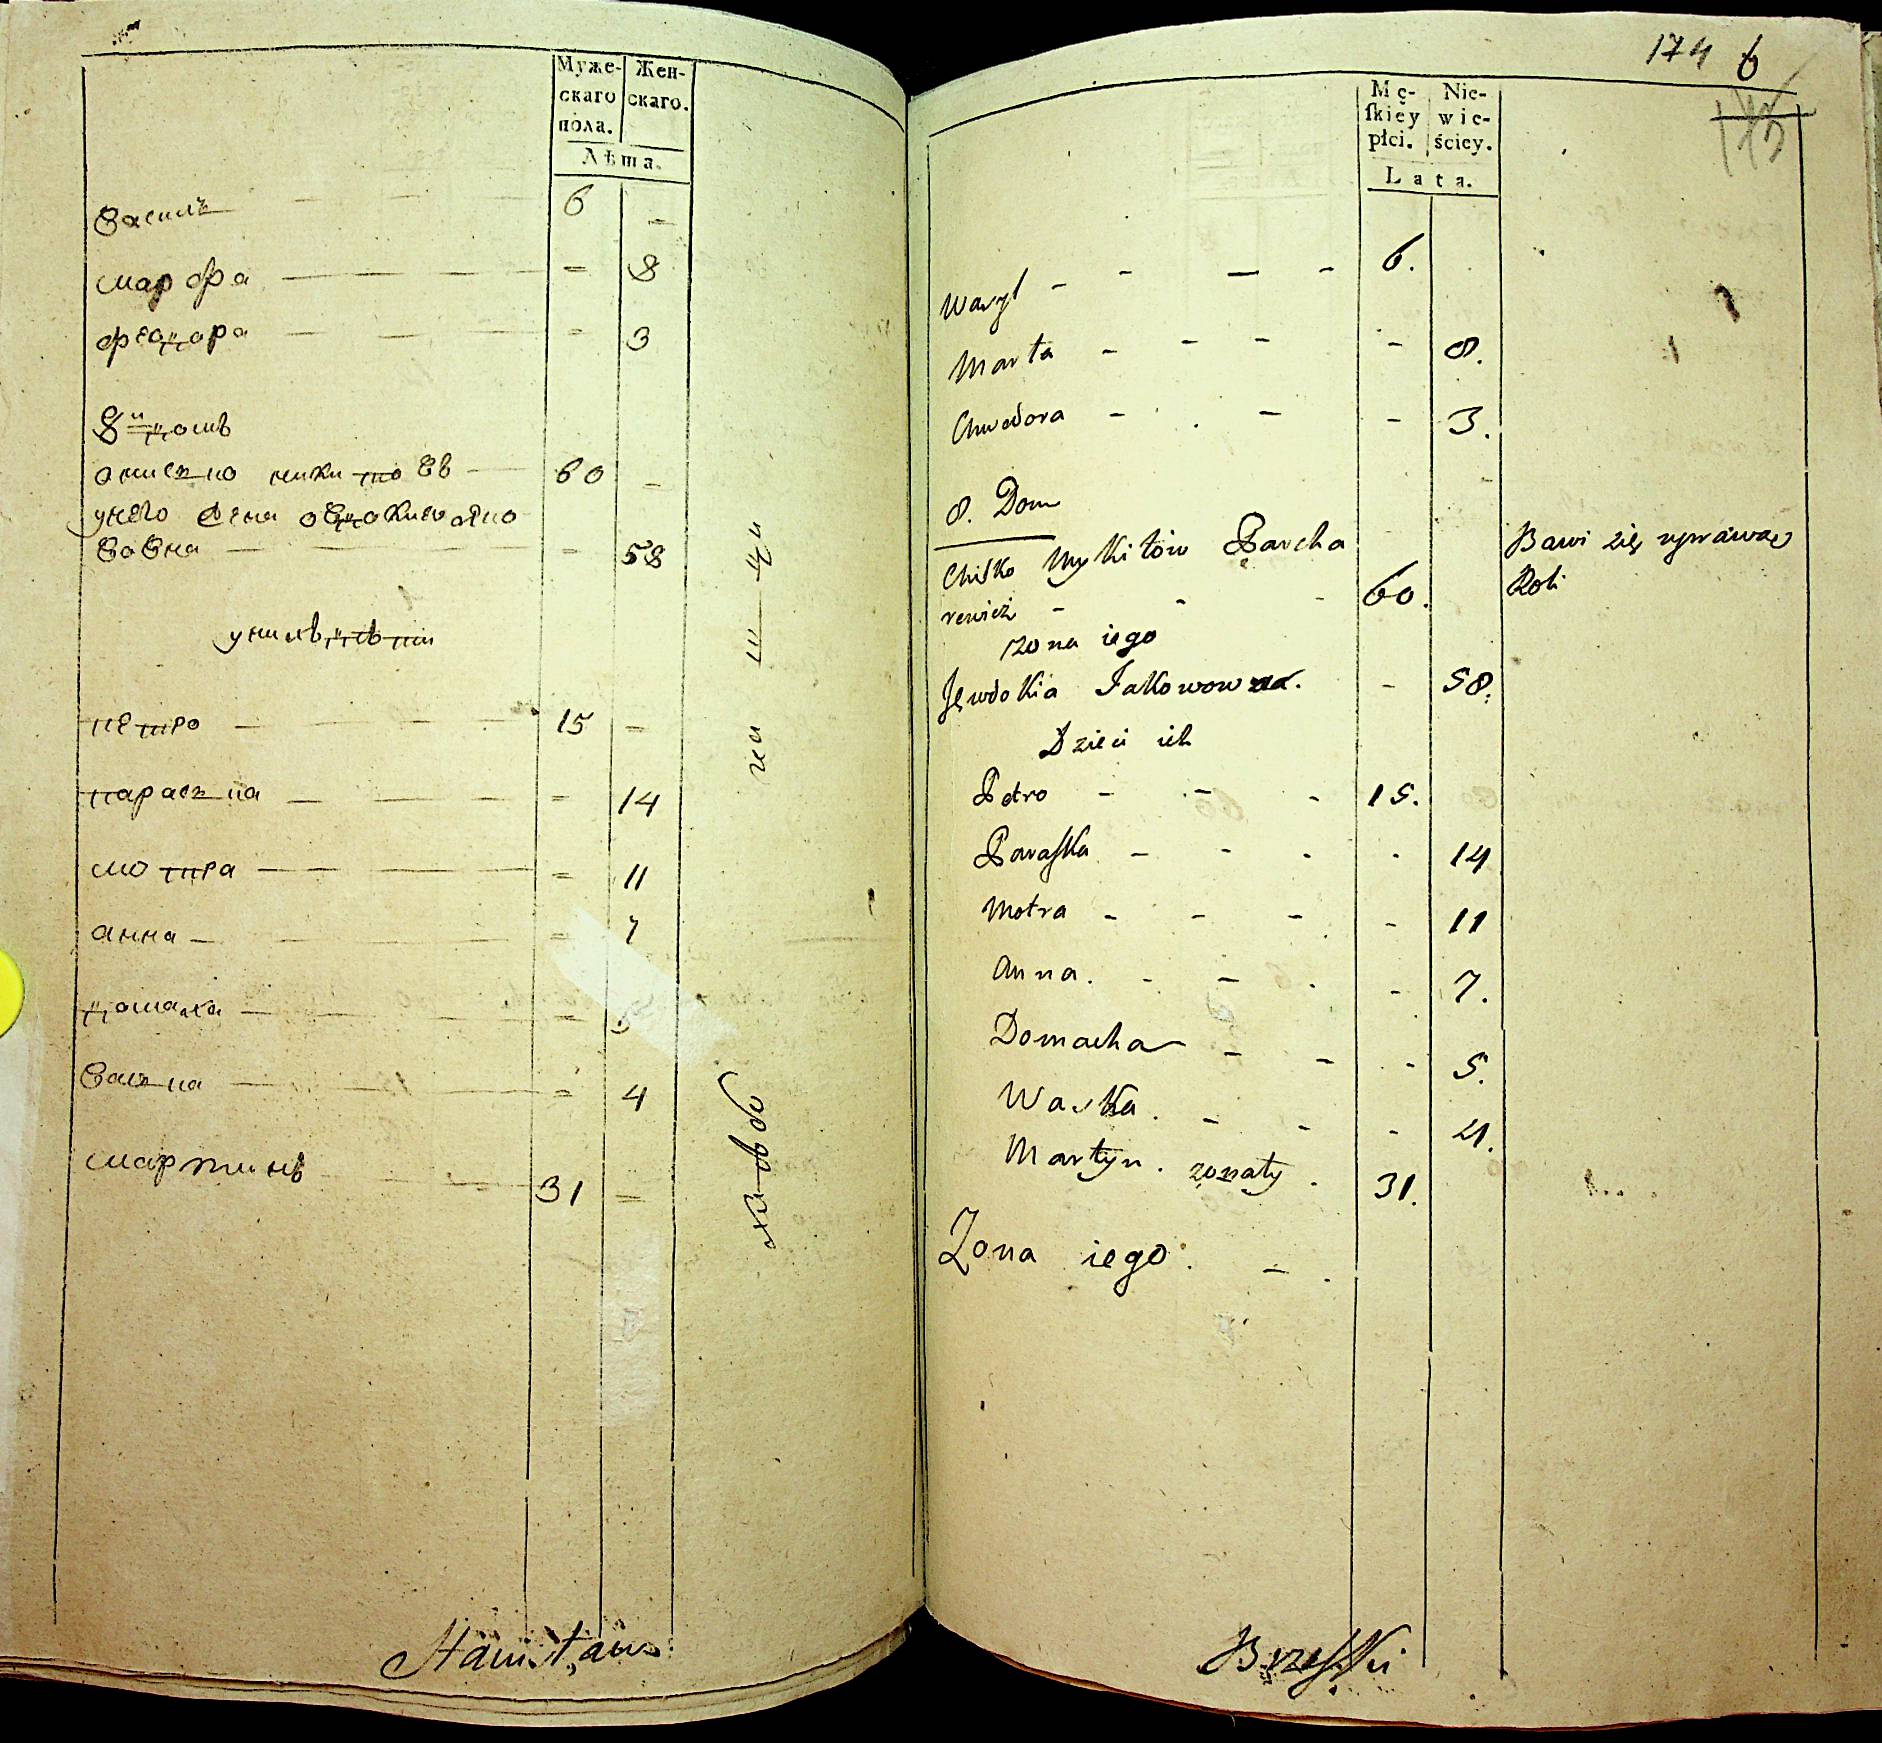 Муже-
скаго
пола.
Жен-
скаго.
Лѣта.
василь 6 -
марфа - 8
феодора - 3
8й домъ
описко никитовъ 60 -
у него жена овдокия яко
вовна - 58
у нихъ дѣти
петро 15 -
параска - 14
мотра - 11
анна - 7
домаха - 5
васка - 4
мартинъ 31 -
Stanisław
174 6
173
Mę-
ſkiey
płci.
Nie-
wie-
ściey.
Lata.
Wasyl - - - - 6.
Marta - - - - 8.
Chwedora - - - 3.
8. Dom
Chilko Mykitów Parcha
rewicz - - - 60.
żona iego
Jewdokia Jakowowna. - 58.
Dzieci ich
Petro - - - 15.
Paraſka - - - - 14
Motra - - - - 11
Anna. - - - - 7.
Domacha - - - 5.
Waska. - - - 4.
Martyn. żonaty. 31.
Żona iego. -
Bawi się uprawą
Roli
Brzeſki